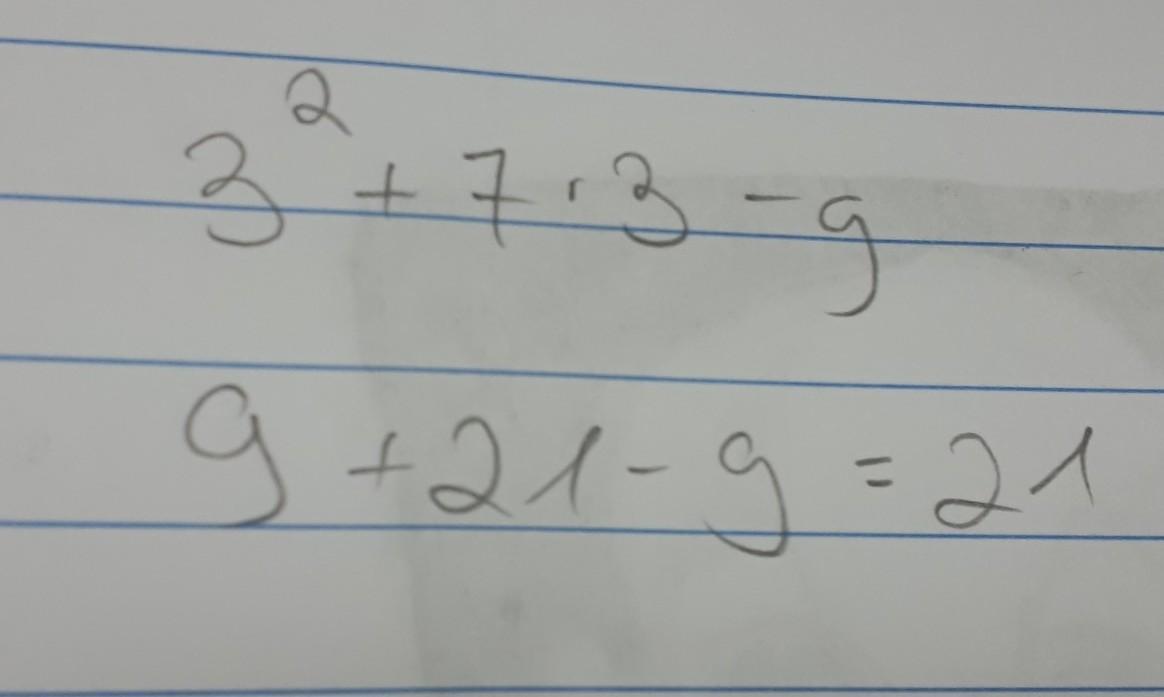 3² + 7 · 3 - 9
9 + 21 - 9 = 21